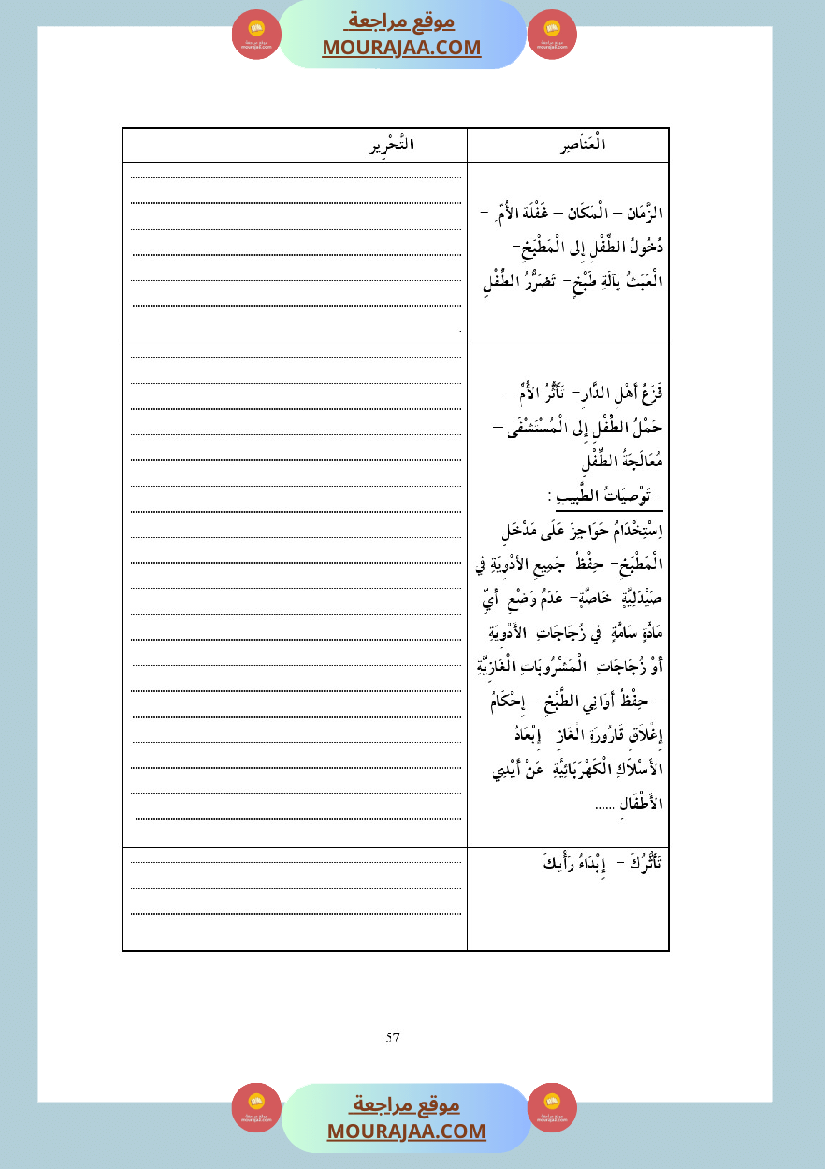 موقع مراجعة
MOURAJAA.COM
الْعَنَاصِر
التَّحْرِير
الزَّمَان – الْمَكَان – غَفْلَة الأُمّ –
دُخُولُ الطِّفْلِ إِلى الْمَطْبَخِ-
الْعَبَثُ بِآلَةِ طَبْخٍ- تَضَرُّرُ الطِّفْلِ
فَزَعُ أَهْلِ الدَّارِ- تَأَثُّرُ الأُمِّ
حَمْلُ الطِّفْلِ إِلى الْمُسْتَشْفَى –
مُعَالَجَةُ الطِّفْلِ
تَوْصِيَاتُ الطَّبِيبِ :
اِسْتِخْدَامُ حَوَاجِزَ عَلَى مَدْخَلِ
الْمَطْبَخِ- حِفْظُ جَمِيعِ الأَدْوِيَةِ في
صَيْدَلِيَّةٍ خَاصَّةٍ- عَدَمُ وَضْعِ أَيِّ
مَادَّةٍ سَامَّةٍ في زُجَاجَاتِ الأَدْوِيَةِ
أَوْ زُجَاجَاتِ الْمَشْرُوبَاتِ الْغَازِيَّةِ
حِفْظُ أَوَانِي الطَّبْخِ إِحْكَامُ
إِغْلاَقِ قَارُورَةِ الْغَازِ إِبْعَادُ
الأَسْلاَكِ الْكَهْرَبَائِيَّةِ عَنْ أَيْدِي
الأَطْفَالِ ......
تَأَثُّرُكَ - إِبْدَاءُ رَأْيِكَ
57
موقع مراجعة
MOURAJAA.COM